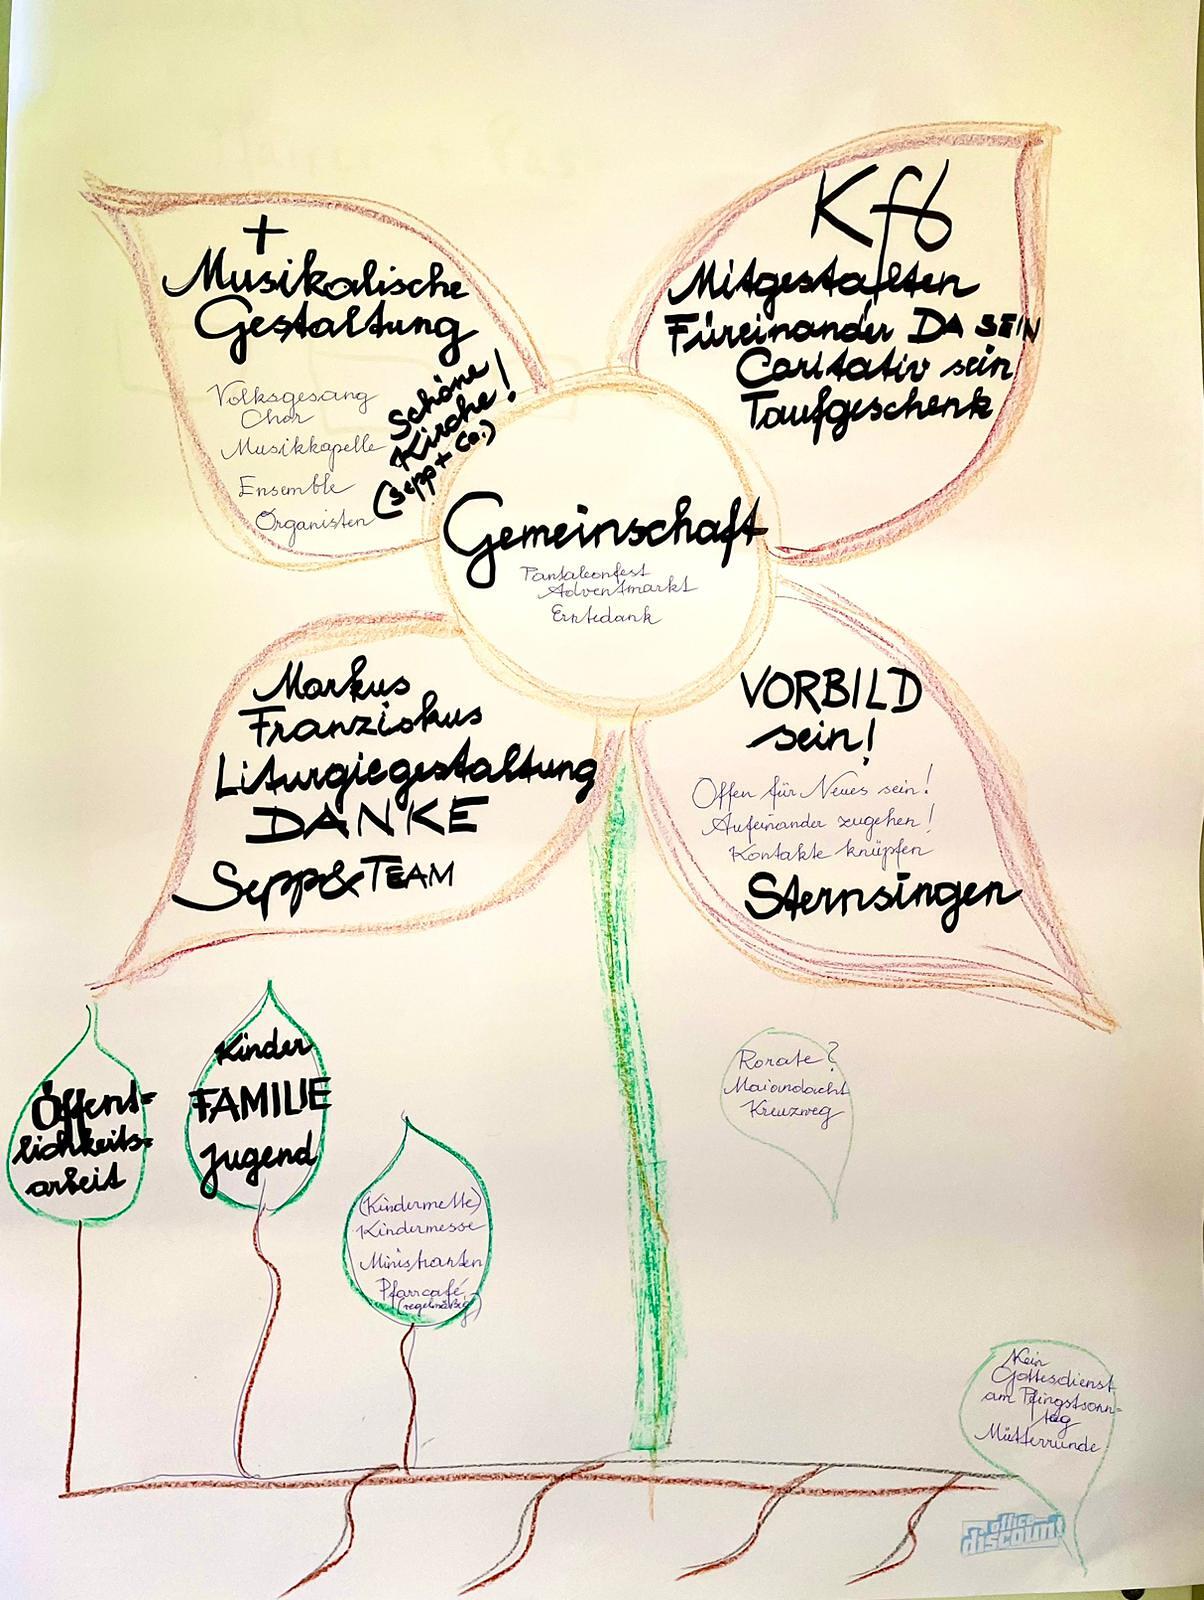 +
Musikalische
Gestaltung
Volksgesang
Chor
Musikkapelle
Ensemble
Organisten
Schöne
Kirche!
(Sepp + Co.)
Kfb
Mitgestalten
Füreinander DA SEIN
Caritativ sein
Taufgeschenk
Gemeinschaft
Pantaleonfest
Adventmarkt
Erntedank
Markus
Franziskus
Liturgiegestaltung
DANKE
Sepp & TEAM
VORBILD
sein!
Offen für Neues sein!
Aufeinander zugehen!
Kontakte knüpfen
Sternsingen
Öffent=
lichkeits=
arbeit
Kinder
FAMILIE
Jugend
(Kindermette)
Kindermesse
Ministranten
Pfarrcafé
(regelmäßig)
Rorate?
Maiandacht
Kreuzweg
Kein
Gottesdienst
am Pfingstsonn=
tag
Mütterrunde
office
discount